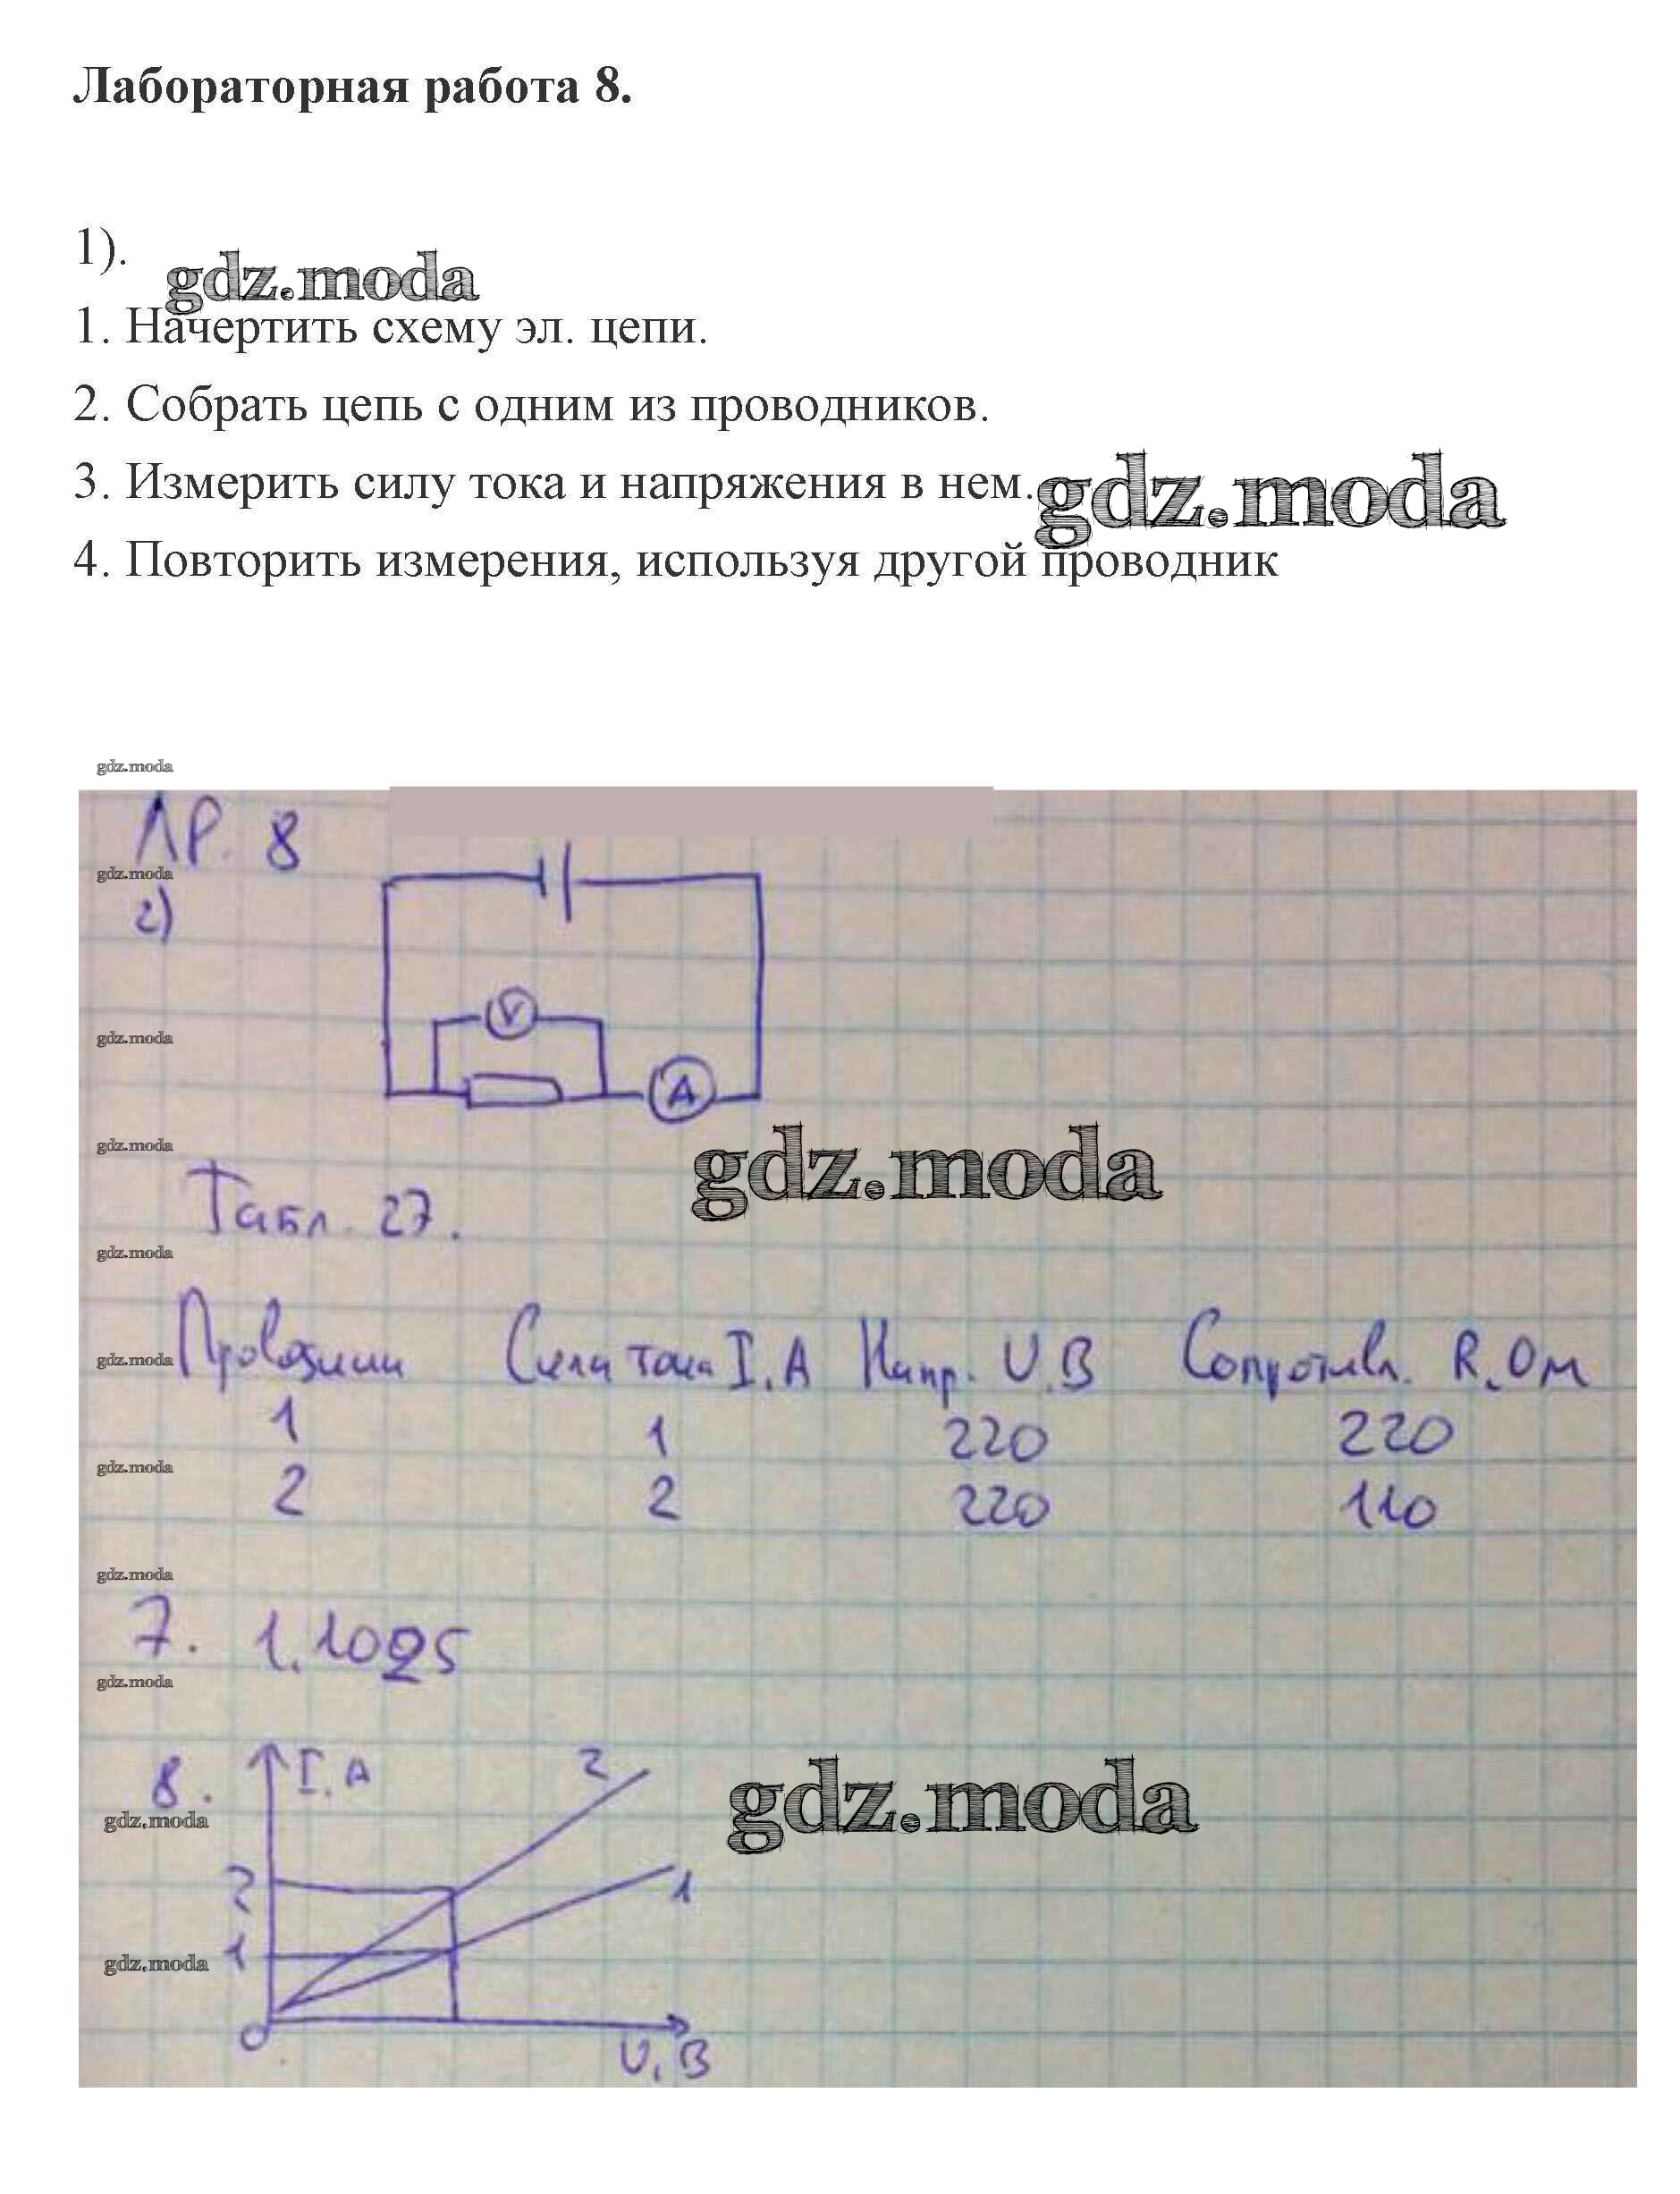 Лабораторная работа 8.
1).
gdz.moda
1. Начертить схему эл. цепи.
2. Собрать цепь с одним из проводников.
3. Измерить силу тока и напряжения в нем.
gdz.moda
4. Повторить измерения, используя другой проводник
gdz.moda
ЛР. 8
gdz.moda
2)
V
gdz.moda
A
gdz.moda
gdz.moda
Табл. 27.
gdz.moda
Проводники Сила тока I, A Напр. U, В Сопротивл. R, Ом
gdz.moda
1 1 220 220
gdz.moda
2 2 220 110
gdz.moda
7. 1.1025
gdz.moda
8. I, A 2
gdz.moda
gdz.moda
2 1
1
gdz.moda
0
U, В